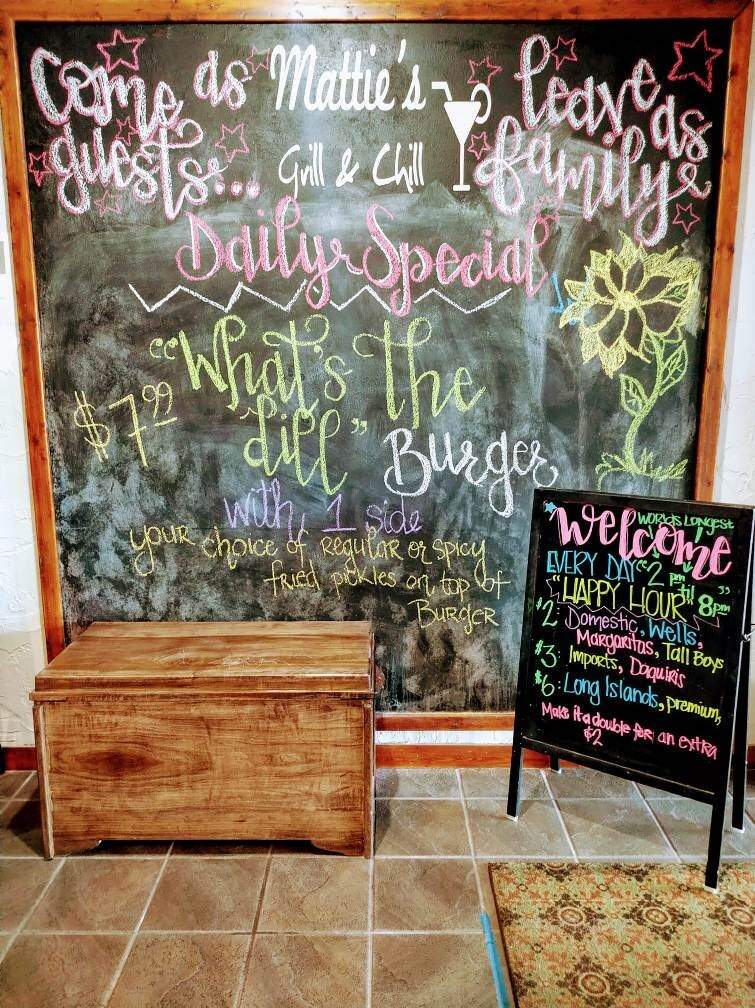 Come as guests...
Mattie's
Grill & Chill
leave as family
Daily Special
"What's The
dill" Burger
$7.99
with 1 side
your choice of regular or spicy
fried pickles on top of
Burger
Welcome
WORLDS LONGEST
EVERY DAY "2 pm
"HAPPY HOUR" til 8pm"
$2: Domestic, Wells,
Margaritas, Tall Boys
$3: Imports, Daquiris
$6: Long Islands, premium,
Make it a double for an extra
$2